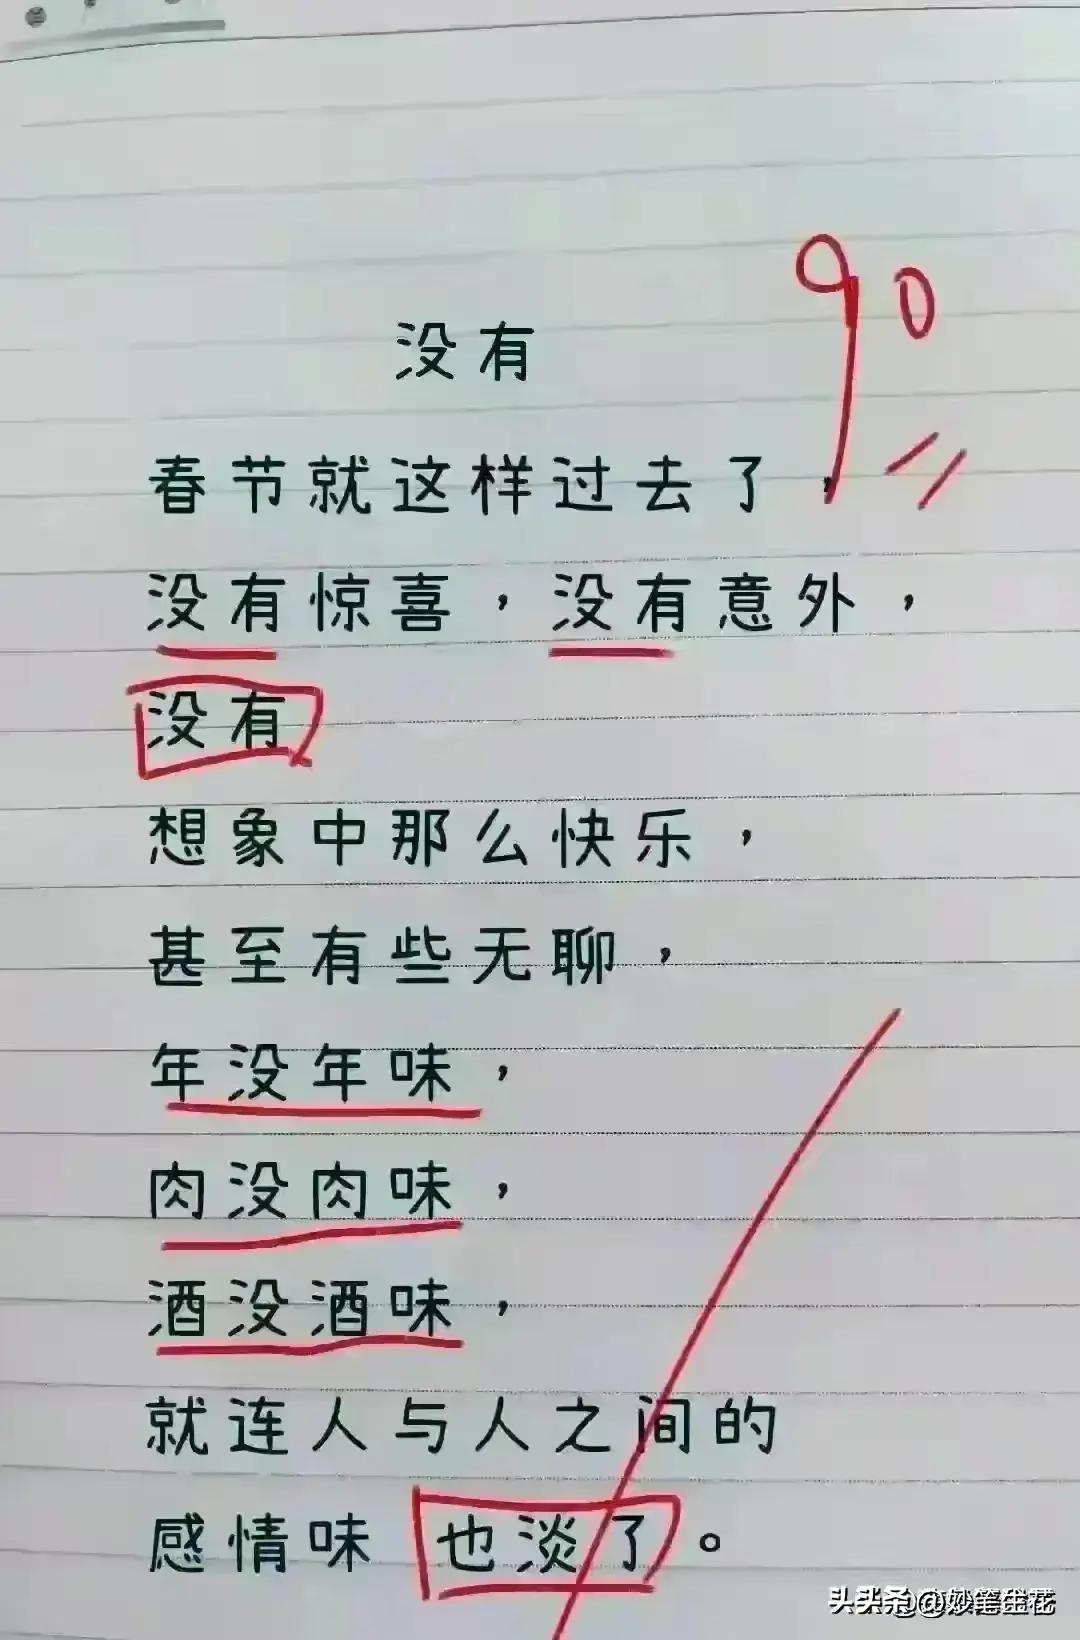 没有
90
春节就这样过去了，
没有惊喜，没有意外，
没有
想象中那么快乐，
甚至有些无聊，
年没年味，
肉没肉味，
酒没酒味，
就连人与人之间的
感情味也淡了。
头条@妙笔生花